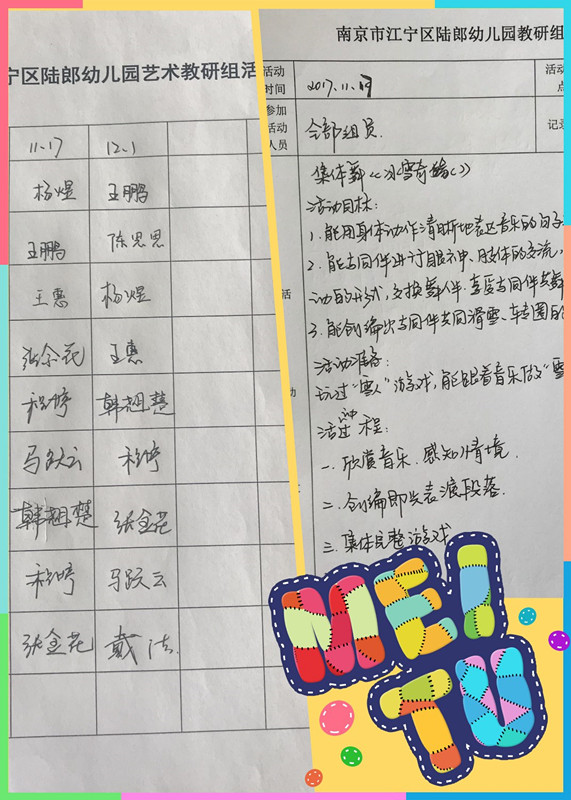 宁区陆郎幼儿园艺术教研组活
11.17 12.1
杨煜 王鹏
王鹏 陈思思
王惠 杨煜
张金花 王惠
程婷 韩翘楚
马跃云 程婷
韩翘楚 张金花
程婷 马跃云
张金花 戴洁
南京市江宁区陆郎幼儿园教研组
活动时间 2017.11.17 活动
点
参加活动人员 全部组员. 记录
集体舞《冰雪奇缘》
活动目标:
1.能用身体动作清晰地表达音乐的句子
2.能与同伴进行眼神、肢体的交流,
动的形式,交换舞伴.喜爱与同伴共舞
3.能创编出与同伴共同滑雪、转圈的
活动准备:
玩过"雪人"游戏,能跟着音乐做"雪
活动过程:
一.欣赏音乐.感知情境.
二.创编即兴表演段落.
三.集体完整游戏
MEI
TU